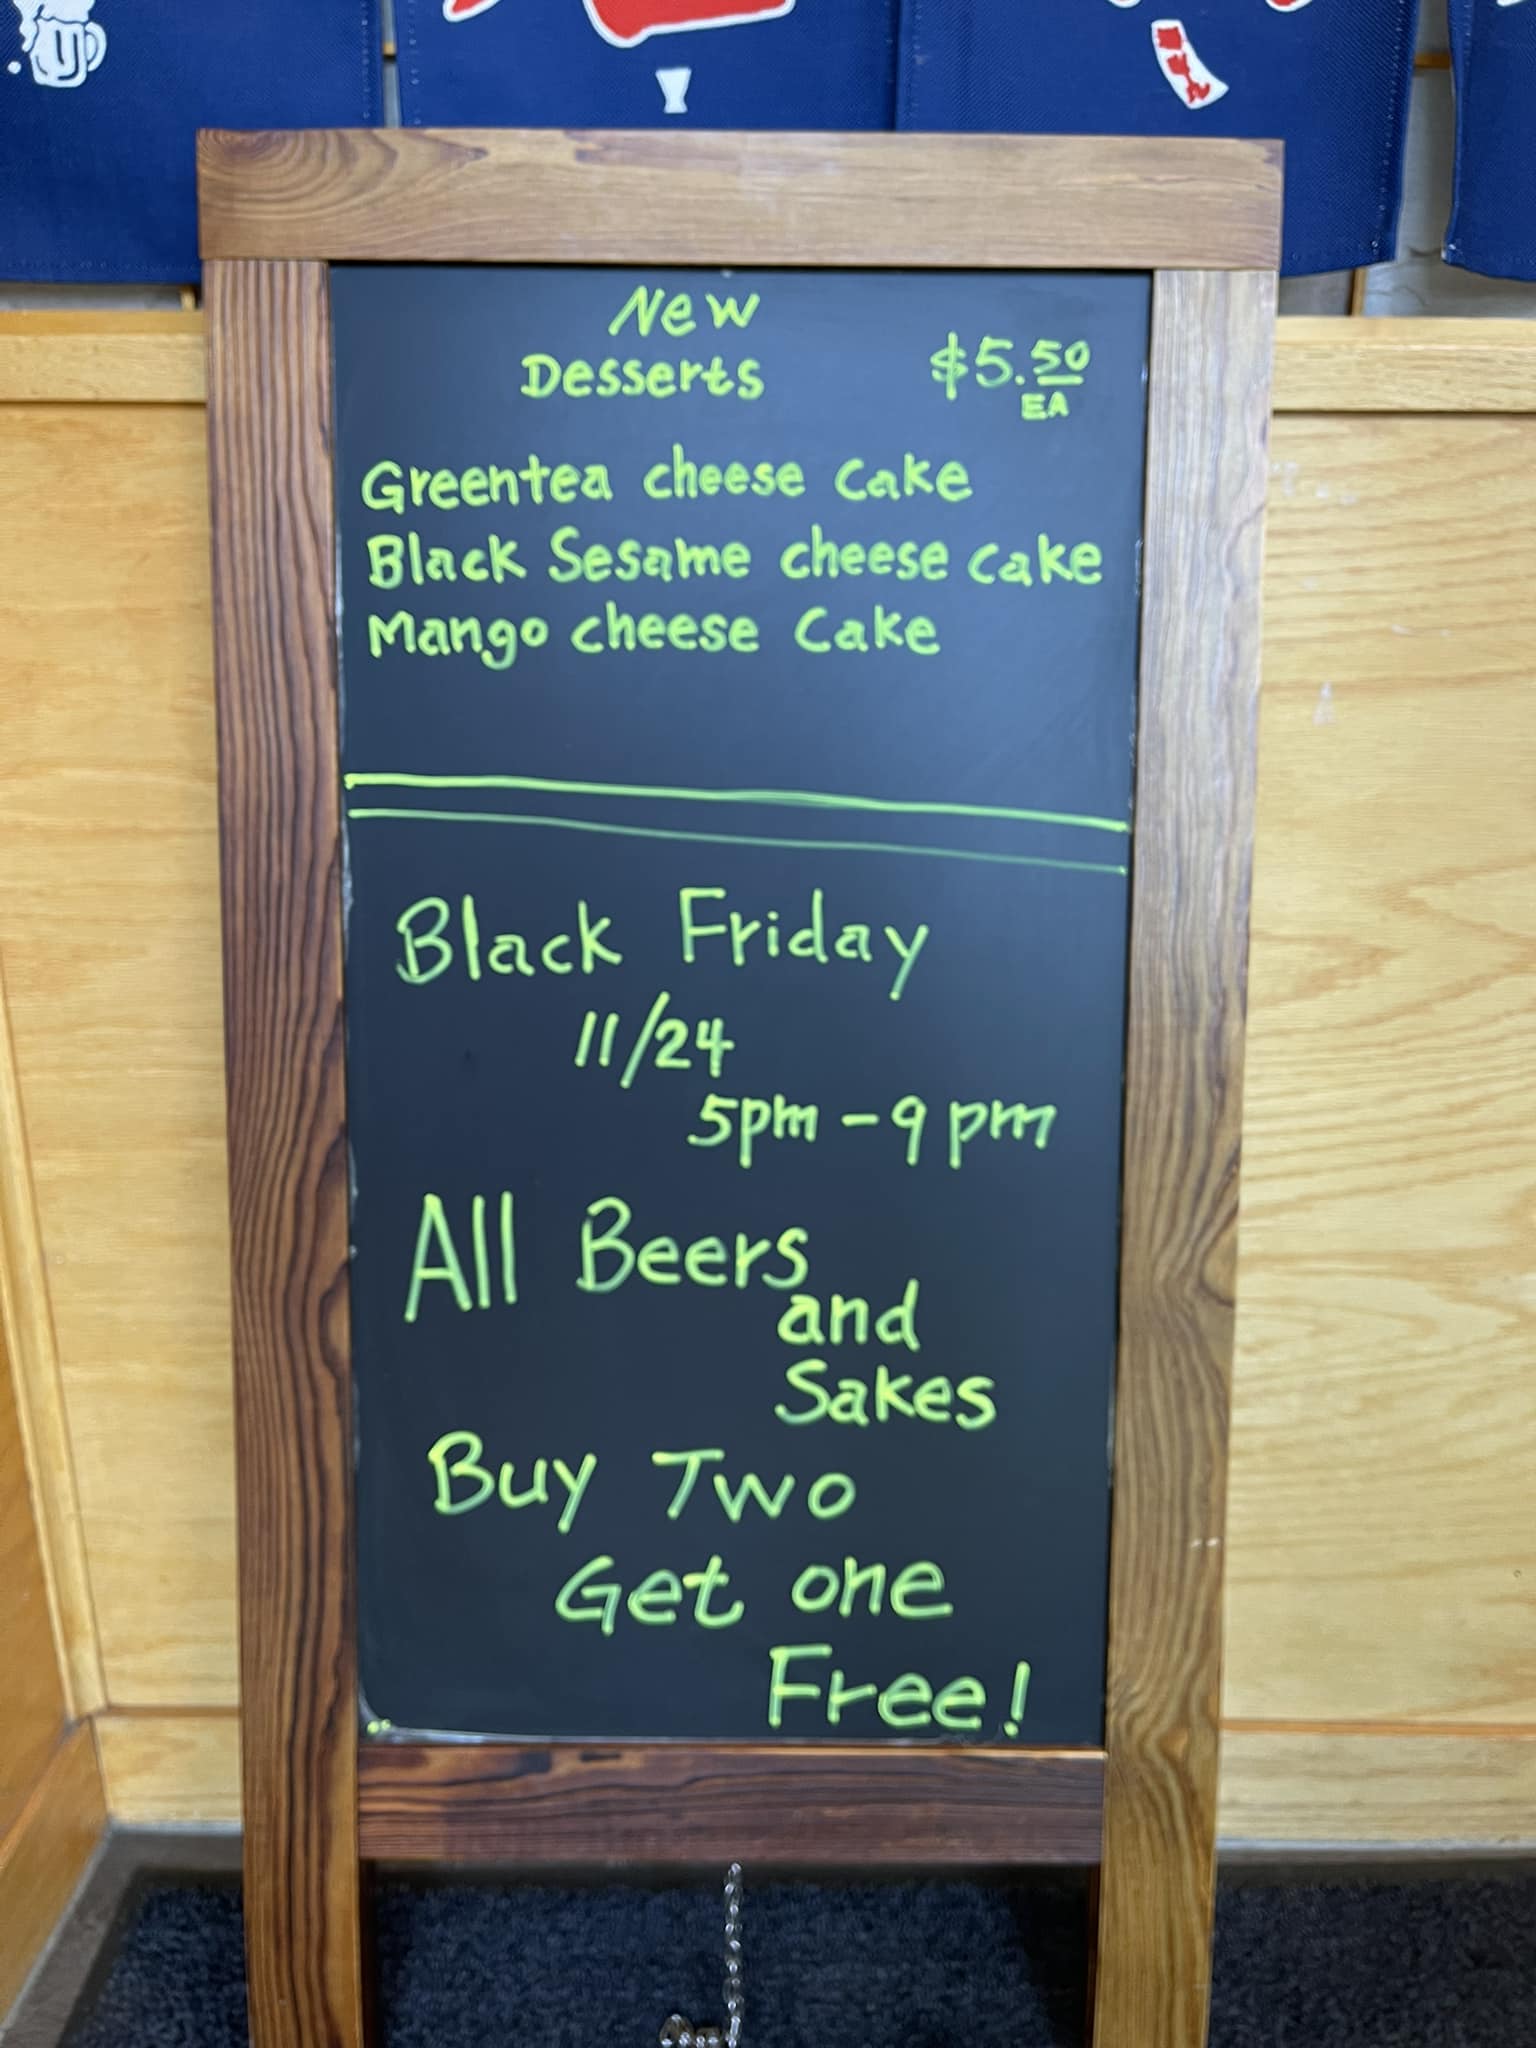 New
Desserts $5.50
EA
Greentea cheese cake
Black Sesame cheese cake
Mango cheese cake
Black Friday
11/24
5pm - 9pm
All Beers
and
Sakes
Buy Two
Get one
Free!